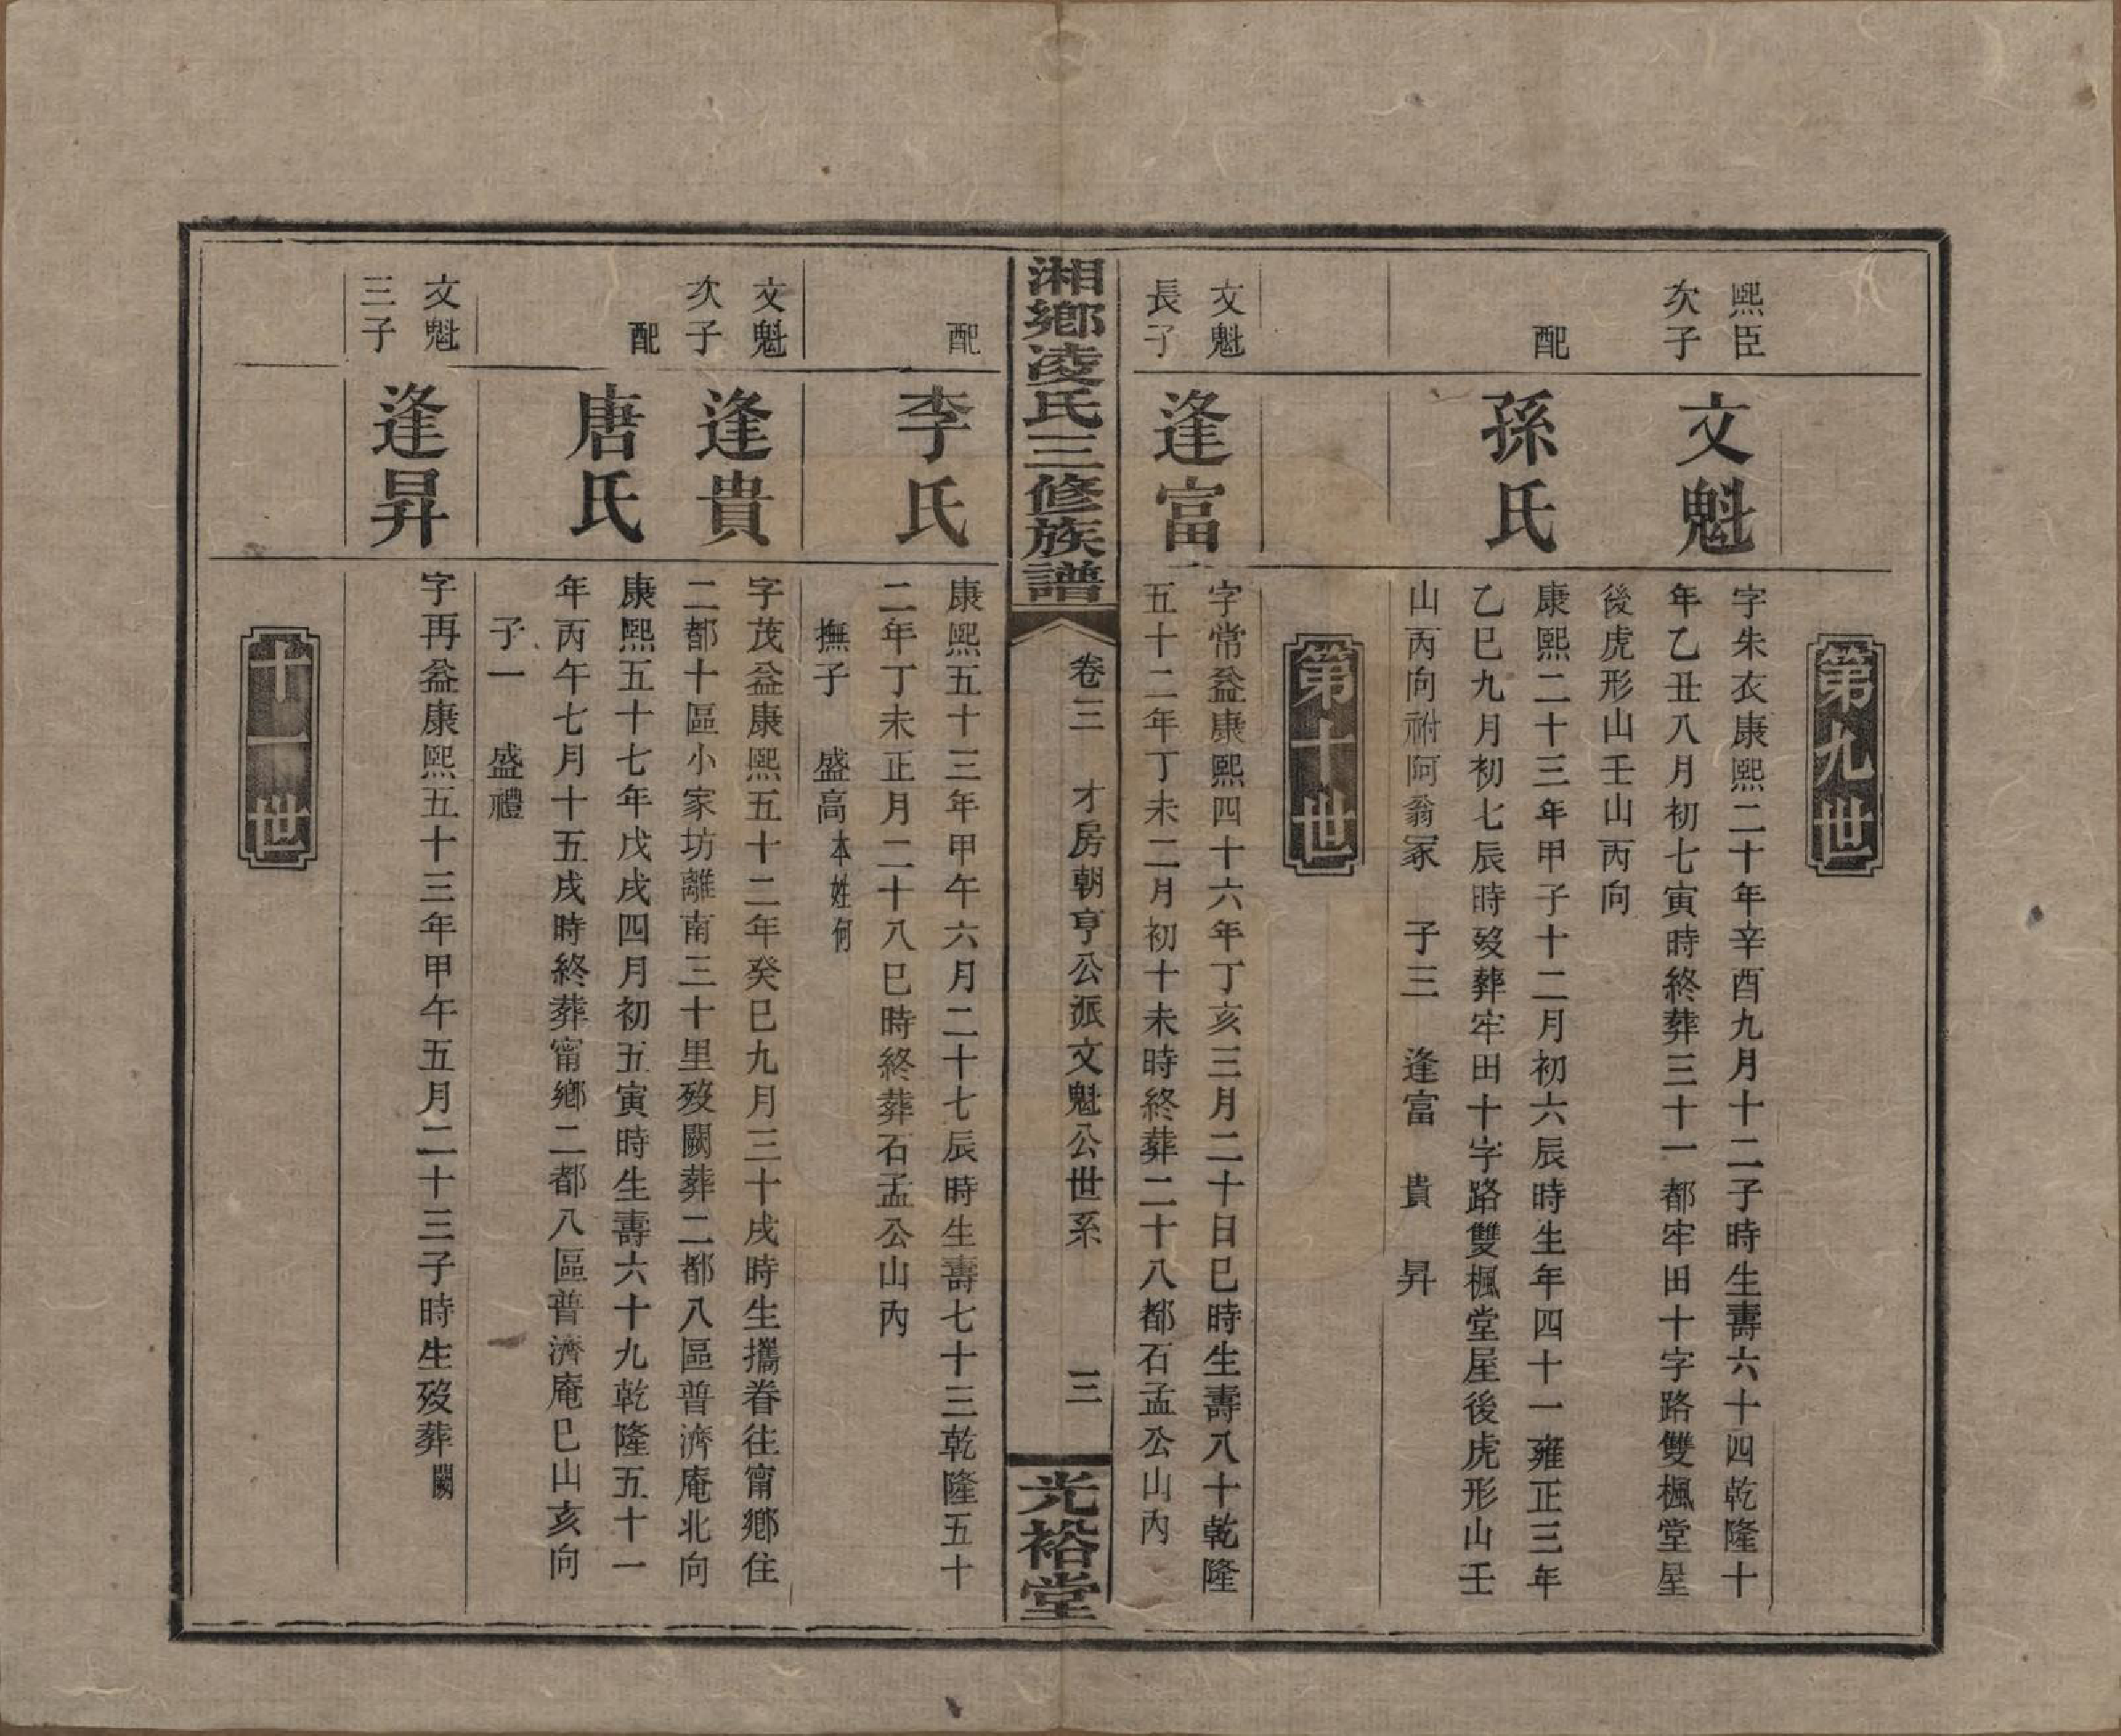 第九世
熙臣
次子
文魁
字朱衣康熙二十年辛酉九月十二子時生壽六十四乾隆十
年乙丑八月初七寅時終葬三十一都牢田十字路雙楓堂屋
後虎形山壬山丙向
配
孫氏
康熙二十三年甲子十二月初六辰時生年四十一雍正三年
乙巳九月初七辰時歿葬牢田十字路雙楓堂屋後虎形山壬
山丙向祔阿翁冢 子三 逢富 貴 昇
第十世
文魁
長子
逢富
字常益康熙四十六年丁亥三月二十日巳時生壽八十乾隆
五十二年丁未二月初十未時終葬二十八都石孟公山內
湘鄉凌氏三修族譜
卷三 才房朝亨公派文魁公世系 三
光裕堂
配
李氏
康熙五十三年甲午六月二十七辰時生壽七十三乾隆五十
二年丁未正月二十八巳時終葬石孟公山內
撫子 盛高本姓何
文魁
次子
逢貴
字茂益康熙五十二年癸巳九月三十戌時生攜眷往甯鄉住
二都十區小家坊離南三十里歿闕葬二都八區普濟庵北向
配
唐氏
康熙五十七年戊戌四月初五寅時生壽六十九乾隆五十一
年丙午七月十五戌時終葬甯鄉二都八區普濟庵巳山亥向
子一 盛禮
文魁
三子
逢昇
字再益康熙五十三年甲午五月二十三子時生歿葬闕
十一世